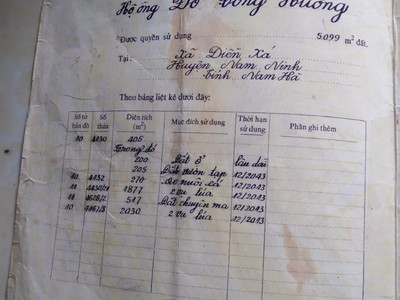 Hộ ông Đỗ Vông Hường
Được quyền sử dụng 5.099 m² đất.
Tại: Xã Diễn Xá
Huyện Nam Ninh
tỉnh Nam Hà
Theo bảng liệt kê dưới đây:
Số tờ bản đồ Số thửa Diện tích (m²) Mục đích sử dụng Thời hạn sử dụng Phần ghi thêm
10 4430 405
trong đó
200 Đất ở lâu dài
205 Đất vườn tạp 12/2043
10 4432 270 ao nuôi cá 12/2013
11 1877 2 vụ lúa 12/2013
11 517 Đất chuyên mạ 12/2013
10 2030 2 vụ lúa 12/2013